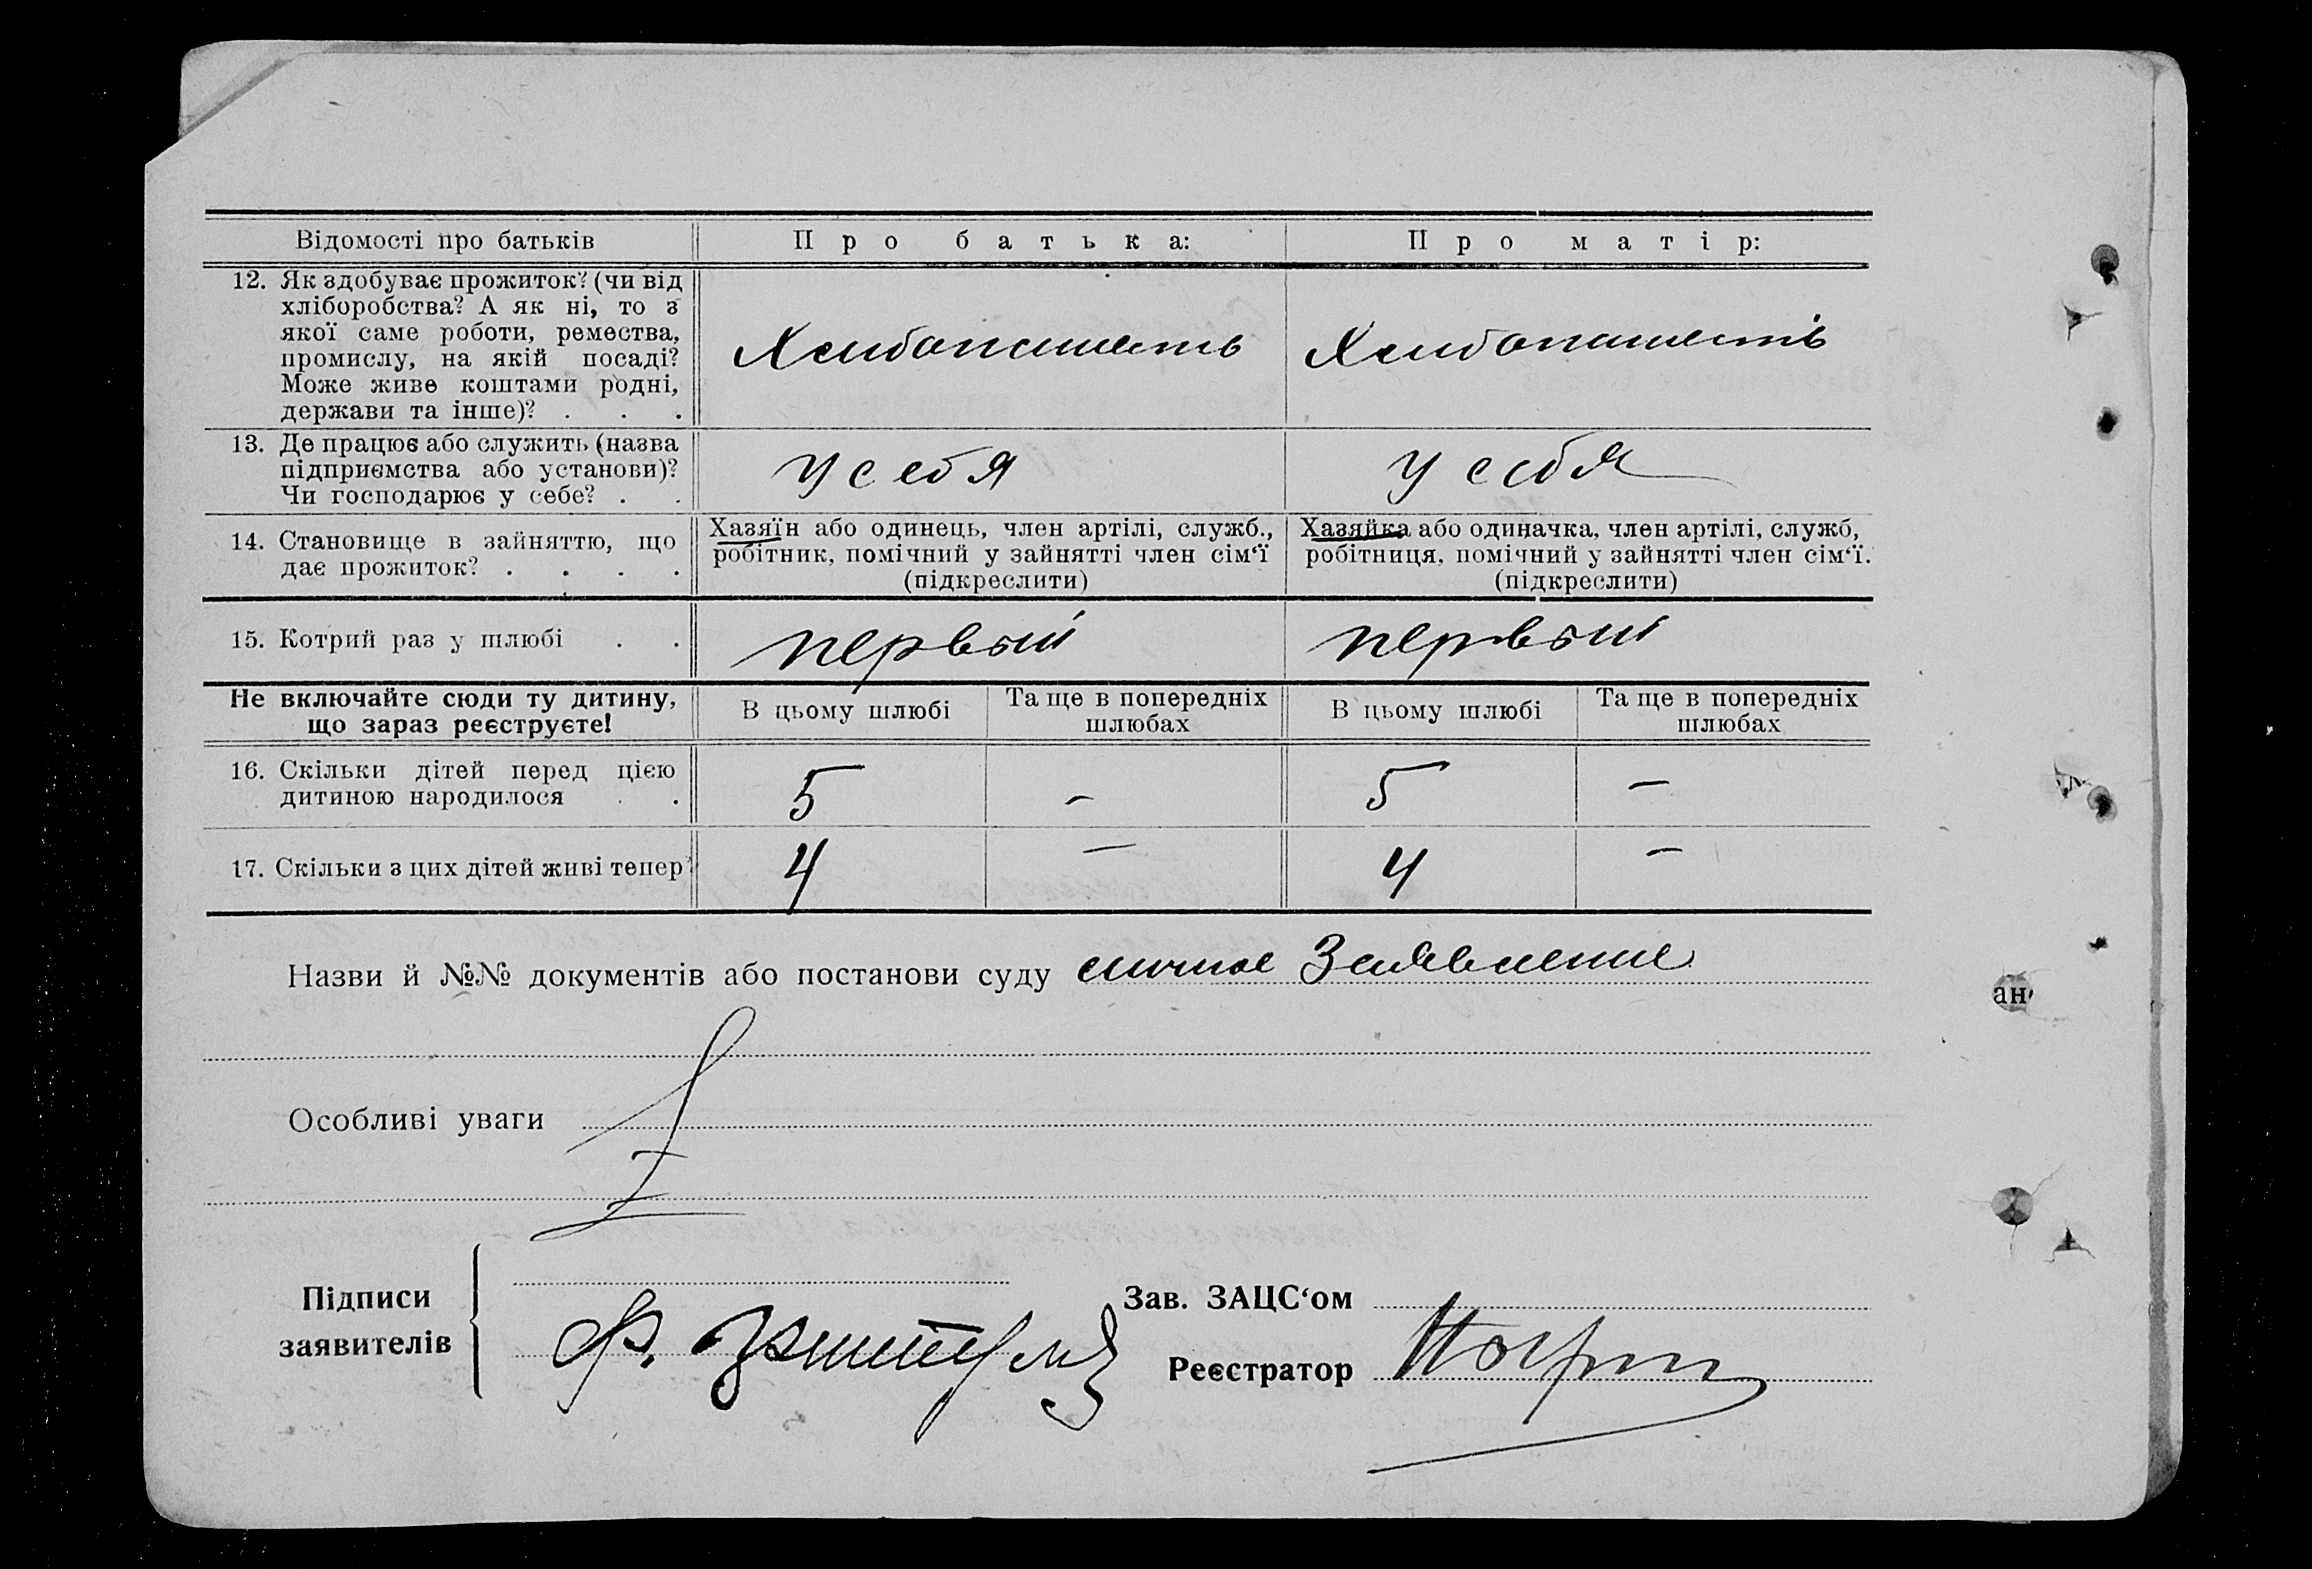 Відомості про батьків
Про батька:
Про матір:
12. Як здобуває прожиток? (чи від
хліборобства? А як ні, то з
якої саме роботи, ремества,
промислу, на якій посаді?
Може живе коштами родні,
держави та інше)? . . .
Хлибопашеть
Хлибопашеть
13. Де працює або служить (назва
підприємства або установи)?
Чи господарює у себе? . .
у себя
у себя
14. Становище в зайняттю, що
дає прожиток? . . . .
Хазяїн або одинець, член артілі, служб.,
робітник, помічний у зайнятті член сім‘ї
(підкреслити)
Хазяйка або одиначка, член артілі, служб,
робітниця, помічний у зайнятті член сім‘ї.
(підкреслити)
15. Котрий раз у шлюбі . .
первый
первый
Не включайте сюди ту дитину,
що зараз реєструєте!
В цьому шлюбі
Та ще в попередніх
шлюбах
В цьому шлюбі
Та ще в попередніх
шлюбах
16. Скільки дітей перед цією
дитиною народилося . .
5
–
5
–
17. Скільки з цих дітей живі тепер?
4
–
4
–
Назви й №№ документів або постанови суду личное Заявление
Особливі уваги
Підписи
заявителів
Ф.
Зав. ЗАЦС‘ом
Реєстратор
ан